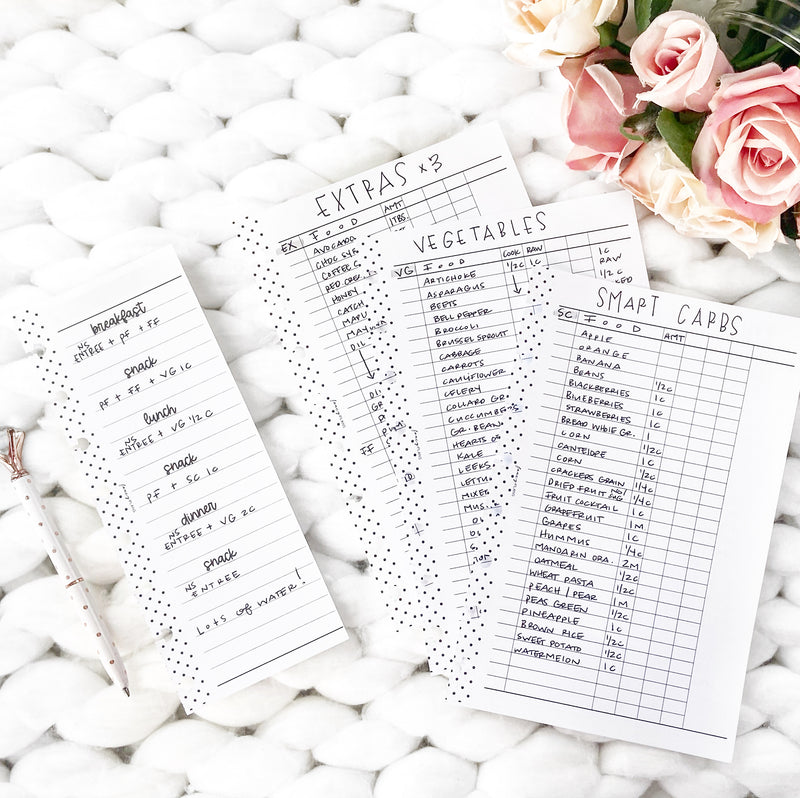 breakfast
NS
ENTREE + PF + FF
snack
PF + FF + VG 1C
lunch
NS
ENTREE + VG 1/2 C
snack
PF + SC 1C
dinner
NS
ENTREE + VG 2C
snack
NS
ENTREE
LOTS OF WATER!
EXTRAS x3
EX FOOD AMT
AVOCADO 1TBS.
CHOC SYR.
COFFEE
HONEY
CATCH
MAYU
DIL
FF
VEGETABLES
VG FOOD COOK RAW
ARTICHOKE 1/2C 1C
ASPARAGUS
BEETS
BELL PEPPER
BROCCOLI
BRUSSEL SPROUT
CABBAGE
CARROTS
CAULIFLOWER
CELERY
COLLARD GR.
CUCCUMBERS
GR. BEAN.
HEARTS
KALE
LEEKS.
LETTU
MIXED
MUS
1C
RAW
1/2 C
SMART CARBS
SC FOOD AMT
APPLE
ORANGE
BANANA
BEANS 1/2C
BLACKBERRIES 1C
BLUEBERRIES 1C
STRAWBERRIES 1C
BREAD WHOLE GR. 1
CORN 1/2C
CANTELOPE 1C
CORN 1/2C
CRACKERS GRAIN 1/4C
DRIED FRUIT NO SUG 1/4C
FRUIT COCKTAIL 1C
GRAPEFRUIT 1M
GRAPES 1C
HUMMUS 1/4C
MANDARIN ORA. 2M
OATMEAL 1/2C
WHEAT PASTA 1/2C
PEACH / PEAR 1M
PEAS GREEN 1/2C
PINEAPPLE 1C
BROWN RICE 1/2C
SWEET POTATO 1/2C
WATERMELON 1C